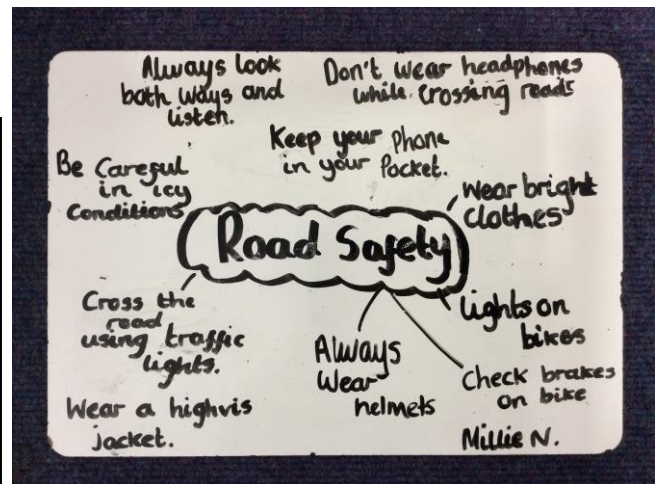 Always look
both ways and
listen.
Don't wear headphones
while crossing roads
Keep your phone
in your Pocket.
Be Careful
in icy
Conditions
Wear bright
clothes
Road Safety
Cross the
road
using traffic
lights.
lights on
bikes
Always
Wear
helmets
Check brakes
on bike
Wear a highvis
jacket.
Millie N.